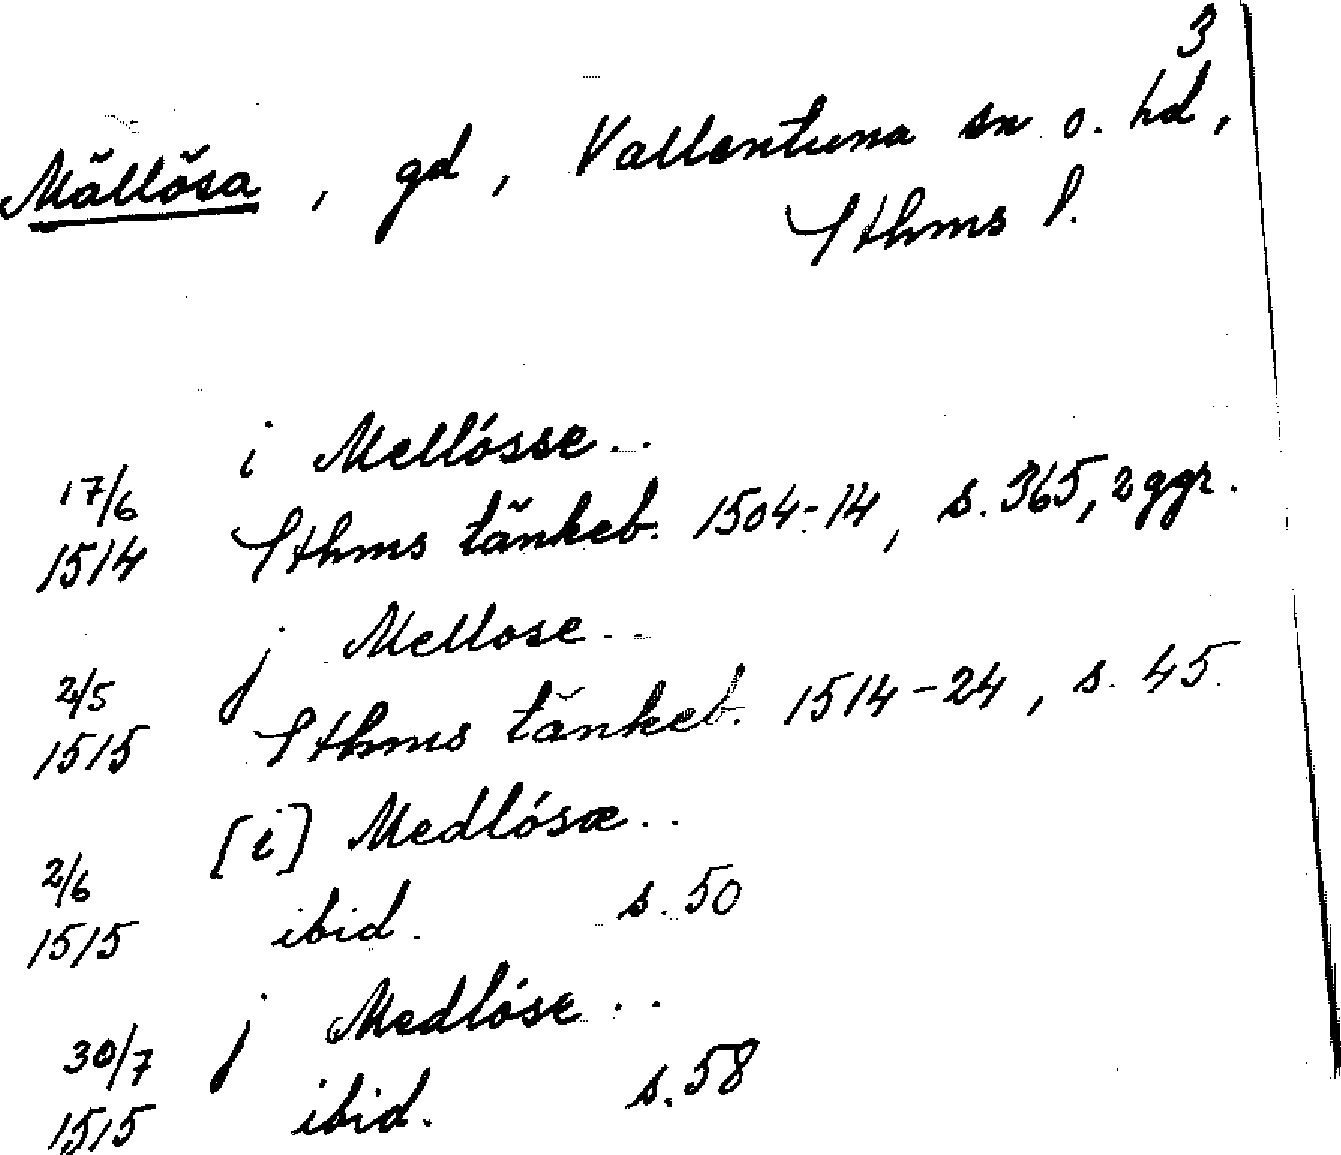 3
Mällösa, gd, Vallentuna sn o. hd,
Sthms l.
i Mellósse..
17/6
1514 Sthms tänkeb. 1504-14, s. 365, 2 ggr.
j Mellose..
2/5
1515 Sthms tänkeb. 1514-24, s. 45.
[i] Medlósæ..
2/6
1515 ibid. s. 50
j Medlóse..
30/7
1515 ibid. s. 58